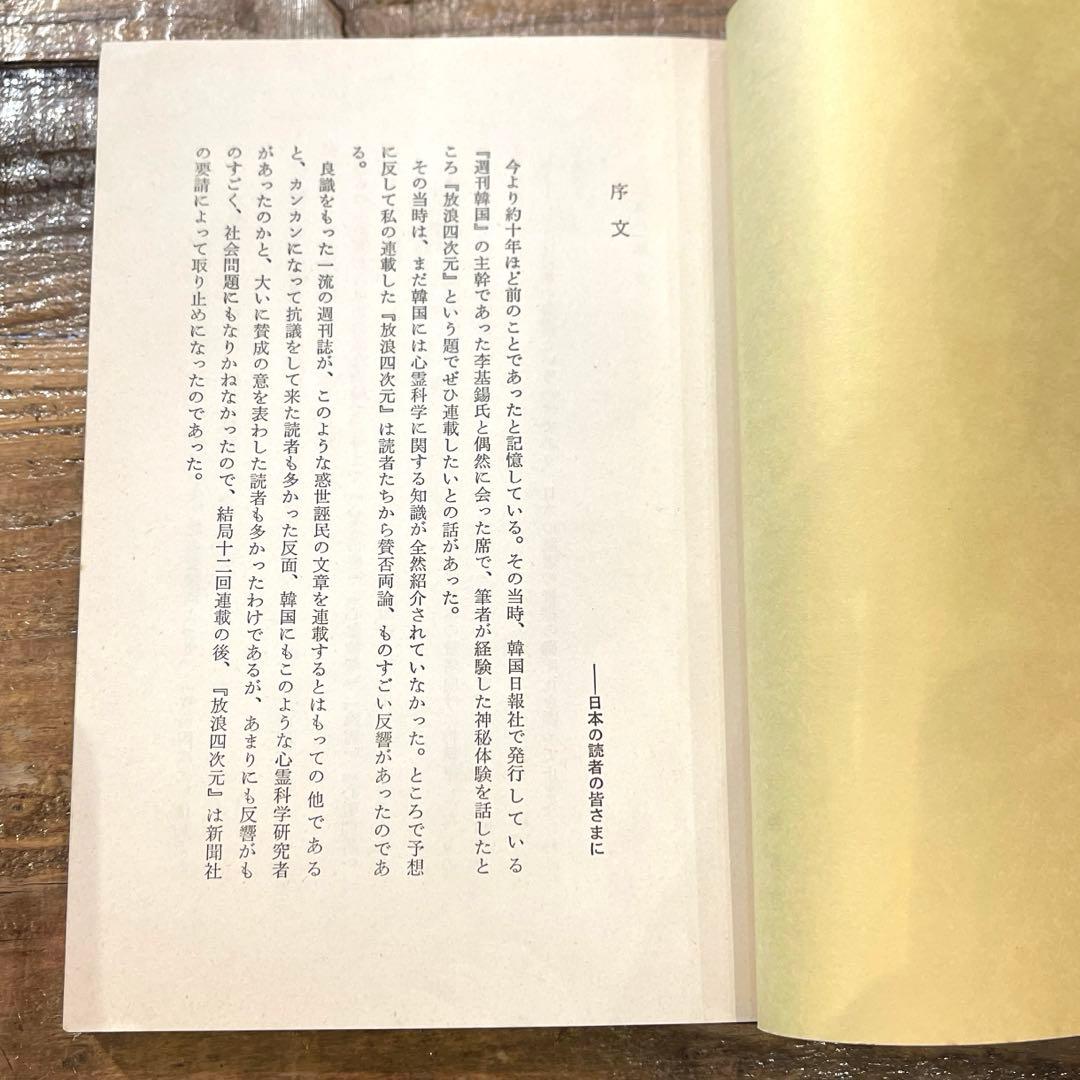 序文
――日本の読者の皆さまに
今より約十年ほど前のことであったと記憶している。その当時、韓国日報社で発行している
『週刊韓国』の主幹であった李基錫氏と偶然に会った席で、筆者が経験した神秘体験を話したと
ころ『放浪四次元』という題でぜひ連載したいとの話があった。
その当時は、まだ韓国には心霊科学に関する知識が全然紹介されていなかった。ところで予想
に反して私の連載した『放浪四次元』は読者たちから賛否両論、ものすごい反響があったのであ
る。
良識をもった一流の週刊誌が、このような惑世誣民の文章を連載するとはもっての他である
と、カンカンになって抗議をして来た読者も多かった反面、韓国にもこのような心霊科学研究者
があったのかと、大いに賛成の意を表わした読者も多かったわけであるが、あまりにも反響がも
のすごく、社会問題にもなりかねなかったので、結局十二回連載の後、『放浪四次元』は新聞社
の要請によって取り止めになったのであった。